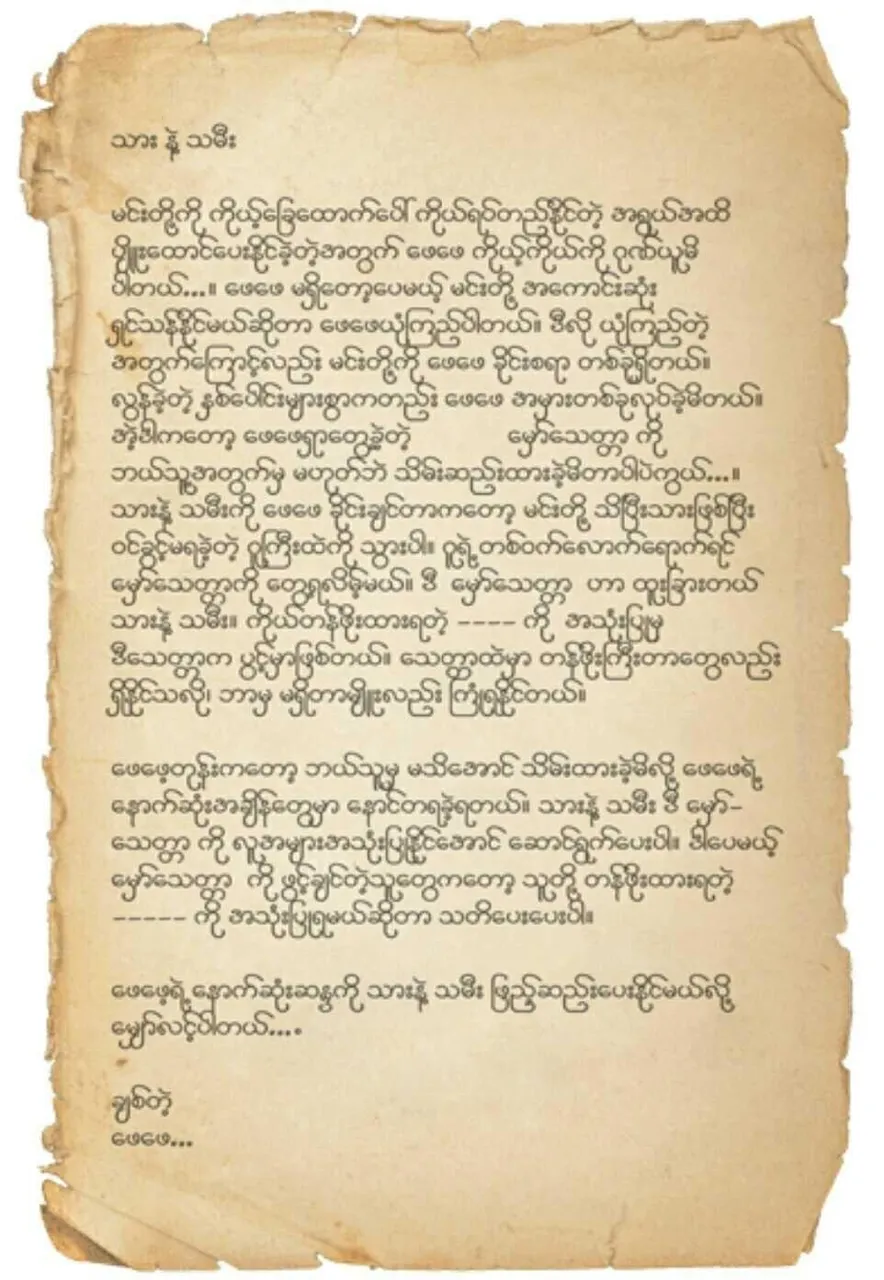 သား နဲ့ သမီး
မင်းတို့ကို ကိုယ့်ခြေထောက်ပေါ် ကိုယ်ရပ်တည်နိုင်တဲ့ အရွယ်အထိ
ပျိုးထောင်ပေးနိုင်ခဲ့တဲ့အတွက် ဖေဖေ ကိုယ့်ကိုယ်ကို ဂုဏ်ယူမိ
ပါတယ်...။ ဖေဖေ မရှိတော့ပေမယ့် မင်းတို့ အကောင်းဆုံး
ရှင်သန်နိုင်မယ်ဆိုတာ ဖေဖေယုံကြည်ပါတယ်။ ဒီလို ယုံကြည်တဲ့
အတွက်ကြောင့်လည်း မင်းတို့ကို ဖေဖေ ခိုင်းစရာ တစ်ခုရှိတယ်။
လွန်ခဲ့တဲ့ နှစ်ပေါင်းများစွာကတည်း ဖေဖေ အမှားတစ်ခုလုပ်ခဲ့မိတယ်။
အဲ့ဒါကတော့ ဖေဖေရှာတွေ့ခဲ့တဲ့ မှော်သေတ္တာ ကို
ဘယ်သူ့အတွက်မှ မဟုတ်ဘဲ သိမ်းဆည်းထားခဲ့မိတာပါပဲကွယ်...။
သားနဲ့ သမီးကို ဖေဖေ ခိုင်းချင်တာကတော့ မင်းတို့ သိပြီးသားဖြစ်ပြီး
ဝင်ခွင့်မရခဲ့တဲ့ ဂူကြီးထဲကို သွားပါ။ ဂူရဲ့ တစ်ဝက်လောက်ရောက်ရင်
မှော်သေတ္တာကို တွေ့ရလိမ့်မယ်။ ဒီ မှော်သေတ္တာ ဟာ ထူးခြားတယ်
သားနဲ့ သမီး။ ကိုယ်တန်ဖိုးထားရတဲ့ ---- ကို အသုံးပြုမှ
ဒီသေတ္တာက ပွင့်မှာဖြစ်တယ်။ သေတ္တာထဲမှာ တန်ဖိုးကြီးတာတွေလည်း
ရှိနိုင်သလို၊ ဘာမှ မရှိတာမျိုးလည်း ကြုံရနိုင်တယ်။
ဖေဖေ့တုန်းကတော့ ဘယ်သူမှ မသိအောင် သိမ်းထားခဲ့မိလို့ ဖေဖေရဲ့
နောက်ဆုံးအချိန်တွေမှာ နောင်တရခဲ့ရတယ်။ သားနဲ့ သမီး ဒီ မှော်-
သေတ္တာ ကို လူအများအသုံးပြုနိုင်အောင် ဆောင်ရွက်ပေးပါ။ ဒါပေမယ့်
မှော်သေတ္တာ ကို ဖွင့်ချင်တဲ့သူတွေကတော့ သူတို့ တန်ဖိုးထားရတဲ့
----- ကို အသုံးပြုရမယ်ဆိုတာ သတိပေးပေးပါ။
ဖေဖေ့ရဲ့နောက်ဆုံးဆန္ဒကို သားနဲ့ သမီး ဖြည့်ဆည်းပေးနိုင်မယ်လို့
မျှော်လင့်ပါတယ်...။
ချစ်တဲ့
ဖေဖေ...